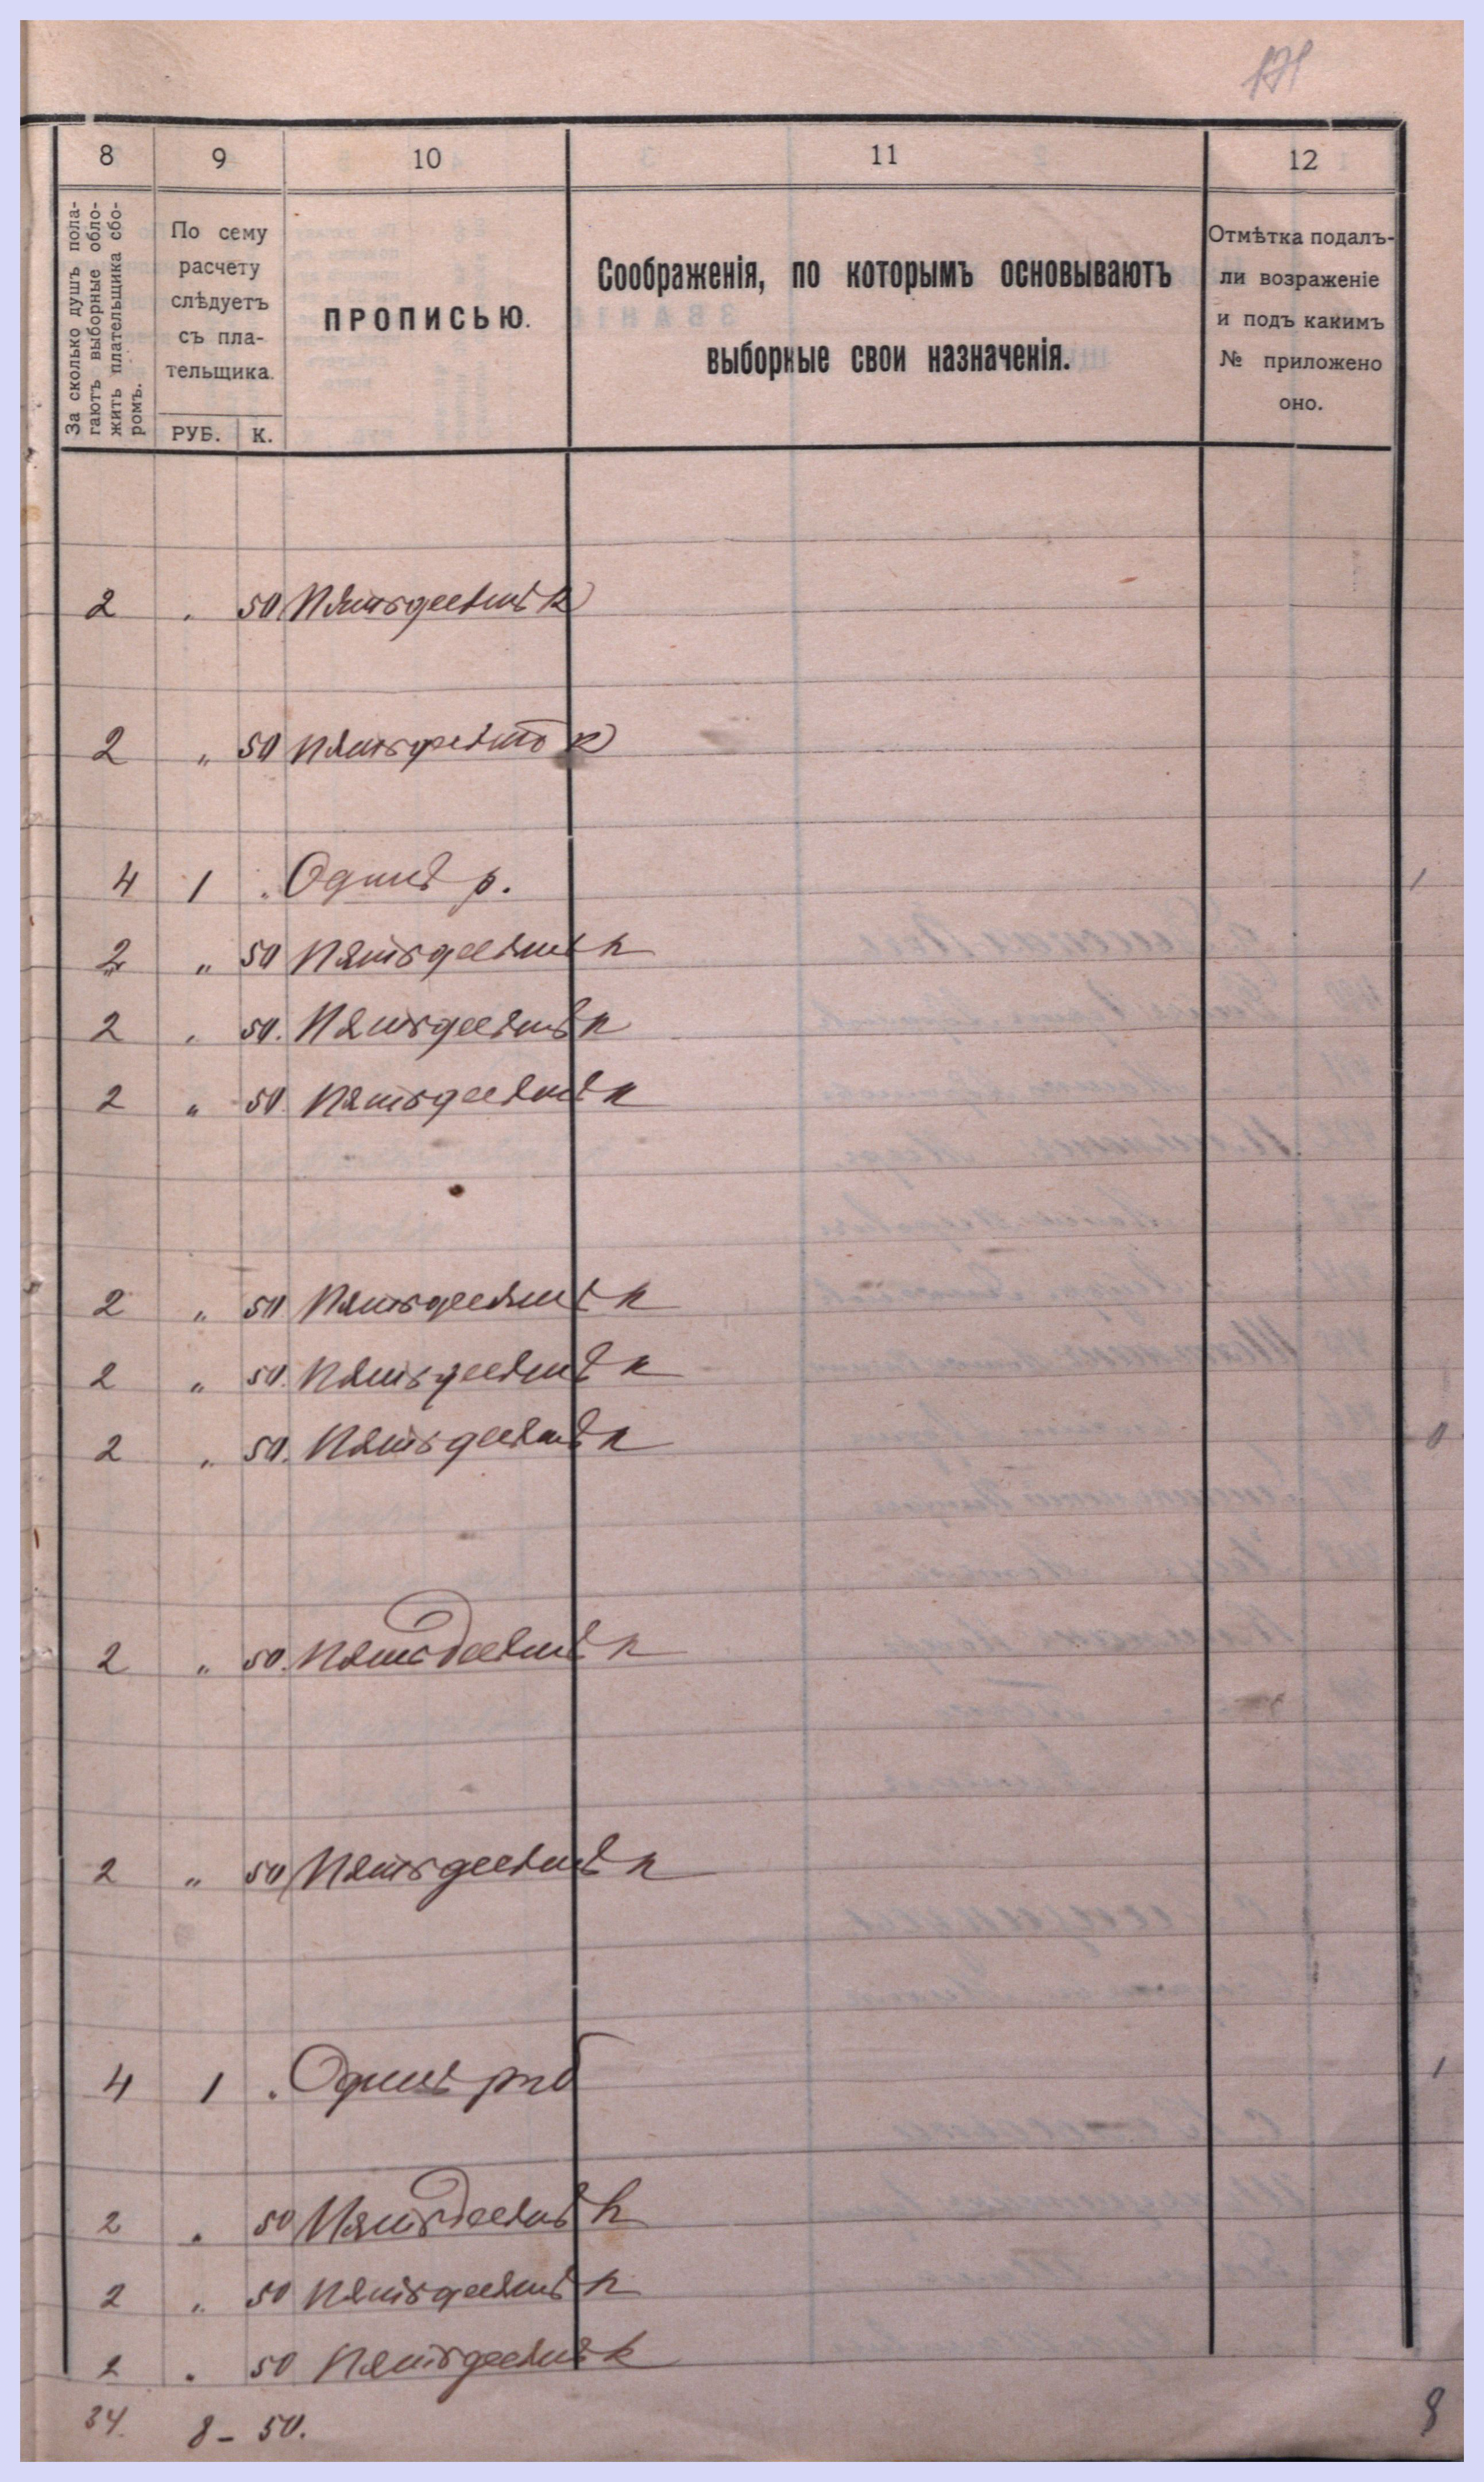 8 9 10 11 12
За сколько душъ пола-
гаютъ выборные обло-
жить плательщика сбо-
ромъ.
По сему
расчету
слѣдуетъ
съ пла-
тельщика.
РУБ. К.
ПРОПИСЬЮ.
Соображенія, по которымъ основываютъ
выборные свои назначенія.
Отмѣтка подалъ-
ли возраженіе
и подъ какимъ
№ приложено
оно.
2 „ 50 Пятьдесятъ к
2 „ 50 Пятьдесятъ к
4 1 „ Одинъ р.
2 „ 50 Пятьдесятъ к
2 „ 50. Пятьдесятъ к
2 „ 50 Пятьдесятъ к
2 „ 50 Пятьдесятъ к
2 „ 50. Пятьдесятъ к
2 „ 50. Пятьдесятъ к
2 „ 50. Пятьдесятъ к
2 „ 50 Пятьдесятъ к
4 1 „ Одинъ руб
2 „ 50 Пятьдесятъ к
2 „ 50 Пятьдесятъ к
2 „ 50 Пятьдесятъ к
34. 8 - 50.